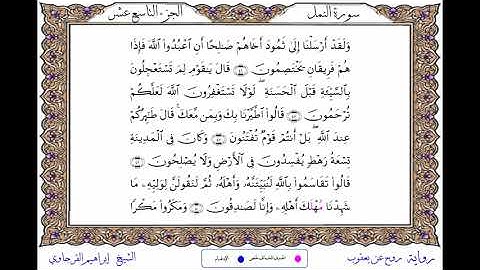 سورة النمل
الجزء التاسع عشر
وَلَقَدْ أَرْسَلْنَا إِلَىٰ ثَمُودَ أَخَاهُمْ صَٰلِحًا أَنُ اعْبُدُوا اللَّهَ فَإِذَا
هُمْ فَرِيقَانِ يَخْتَصِمُونَ قَالَ يَٰقَوْمِ لِمَ تَسْتَعْجِلُونَ
بِالسَّيِّئَةِ قَبْلَ الْحَسَنَةِ لَوْلَا تَسْتَغْفِرُونَ اللَّهَ لَعَلَّكُمْ
تُرْحَمُونَ قَالُوا اطَّيَّرْنَا بِكَ وَبِمَن مَّعَكَ قَالَ طَٰئِرُكُمْ
عِندَ اللَّهِ بَلْ أَنتُمْ قَوْمٌ تُفْتَنُونَ وَكَانَ فِي الْمَدِينَةِ
تِسْعَةُ رَهْطٍ يُفْسِدُونَ فِي الْأَرْضِ وَلَا يُصْلِحُونَ
قَالُوا تَقَاسَمُوا بِاللَّهِ لَنُبَيِّتَنَّهُ وَأَهْلَهُ ثُمَّ لَنَقُولَنَّ لِوَلِيِّهِ مَا
شَهِدْنَا مُهْلَكَ أَهْلِهِ وَإِنَّا لَصَٰدِقُونَ وَمَكَرُوا مَكْرًا
رواية روح عن يعقوب
الإدغام
الشيخ إبراهيم الفرجاوي